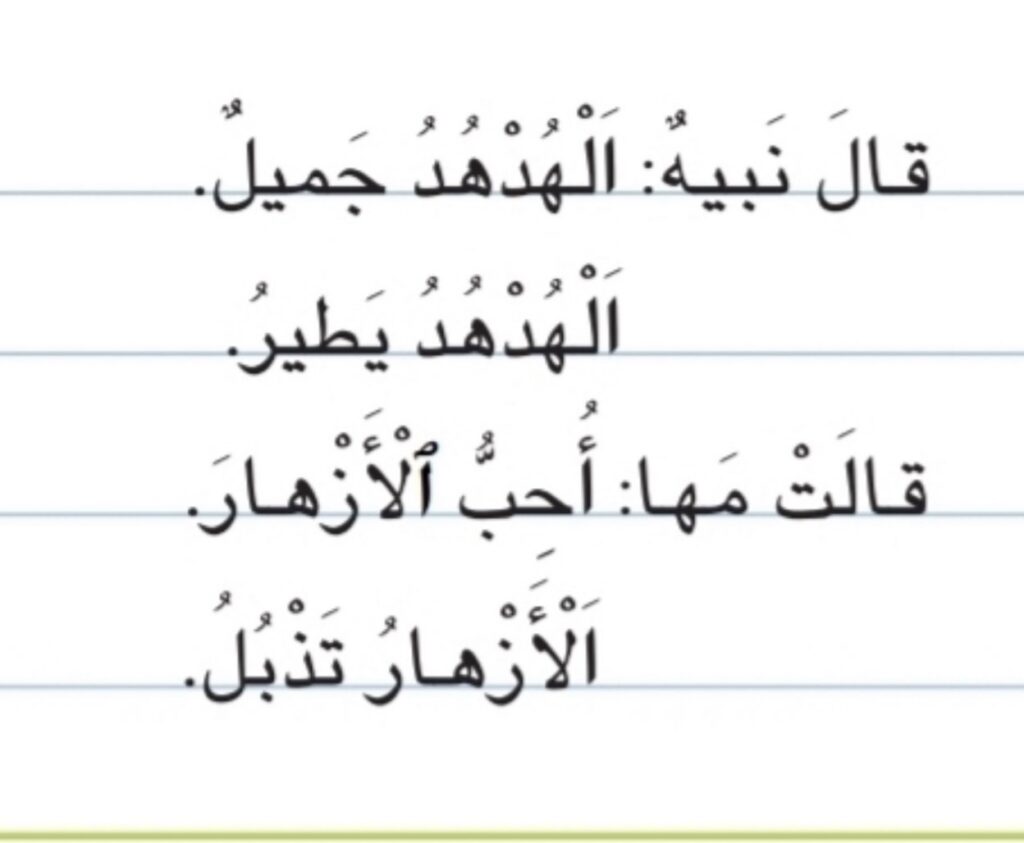 قالَ نَبيهٌ: اَلْهُدْهُدُ جَميلٌ.
اَلْهُدْهُدُ يَطيرُ.
قالَتْ مَها: أُحِبُّ ٱلْأَزْهارَ.
اَلْأَزْهارُ تَذْبُلُ.